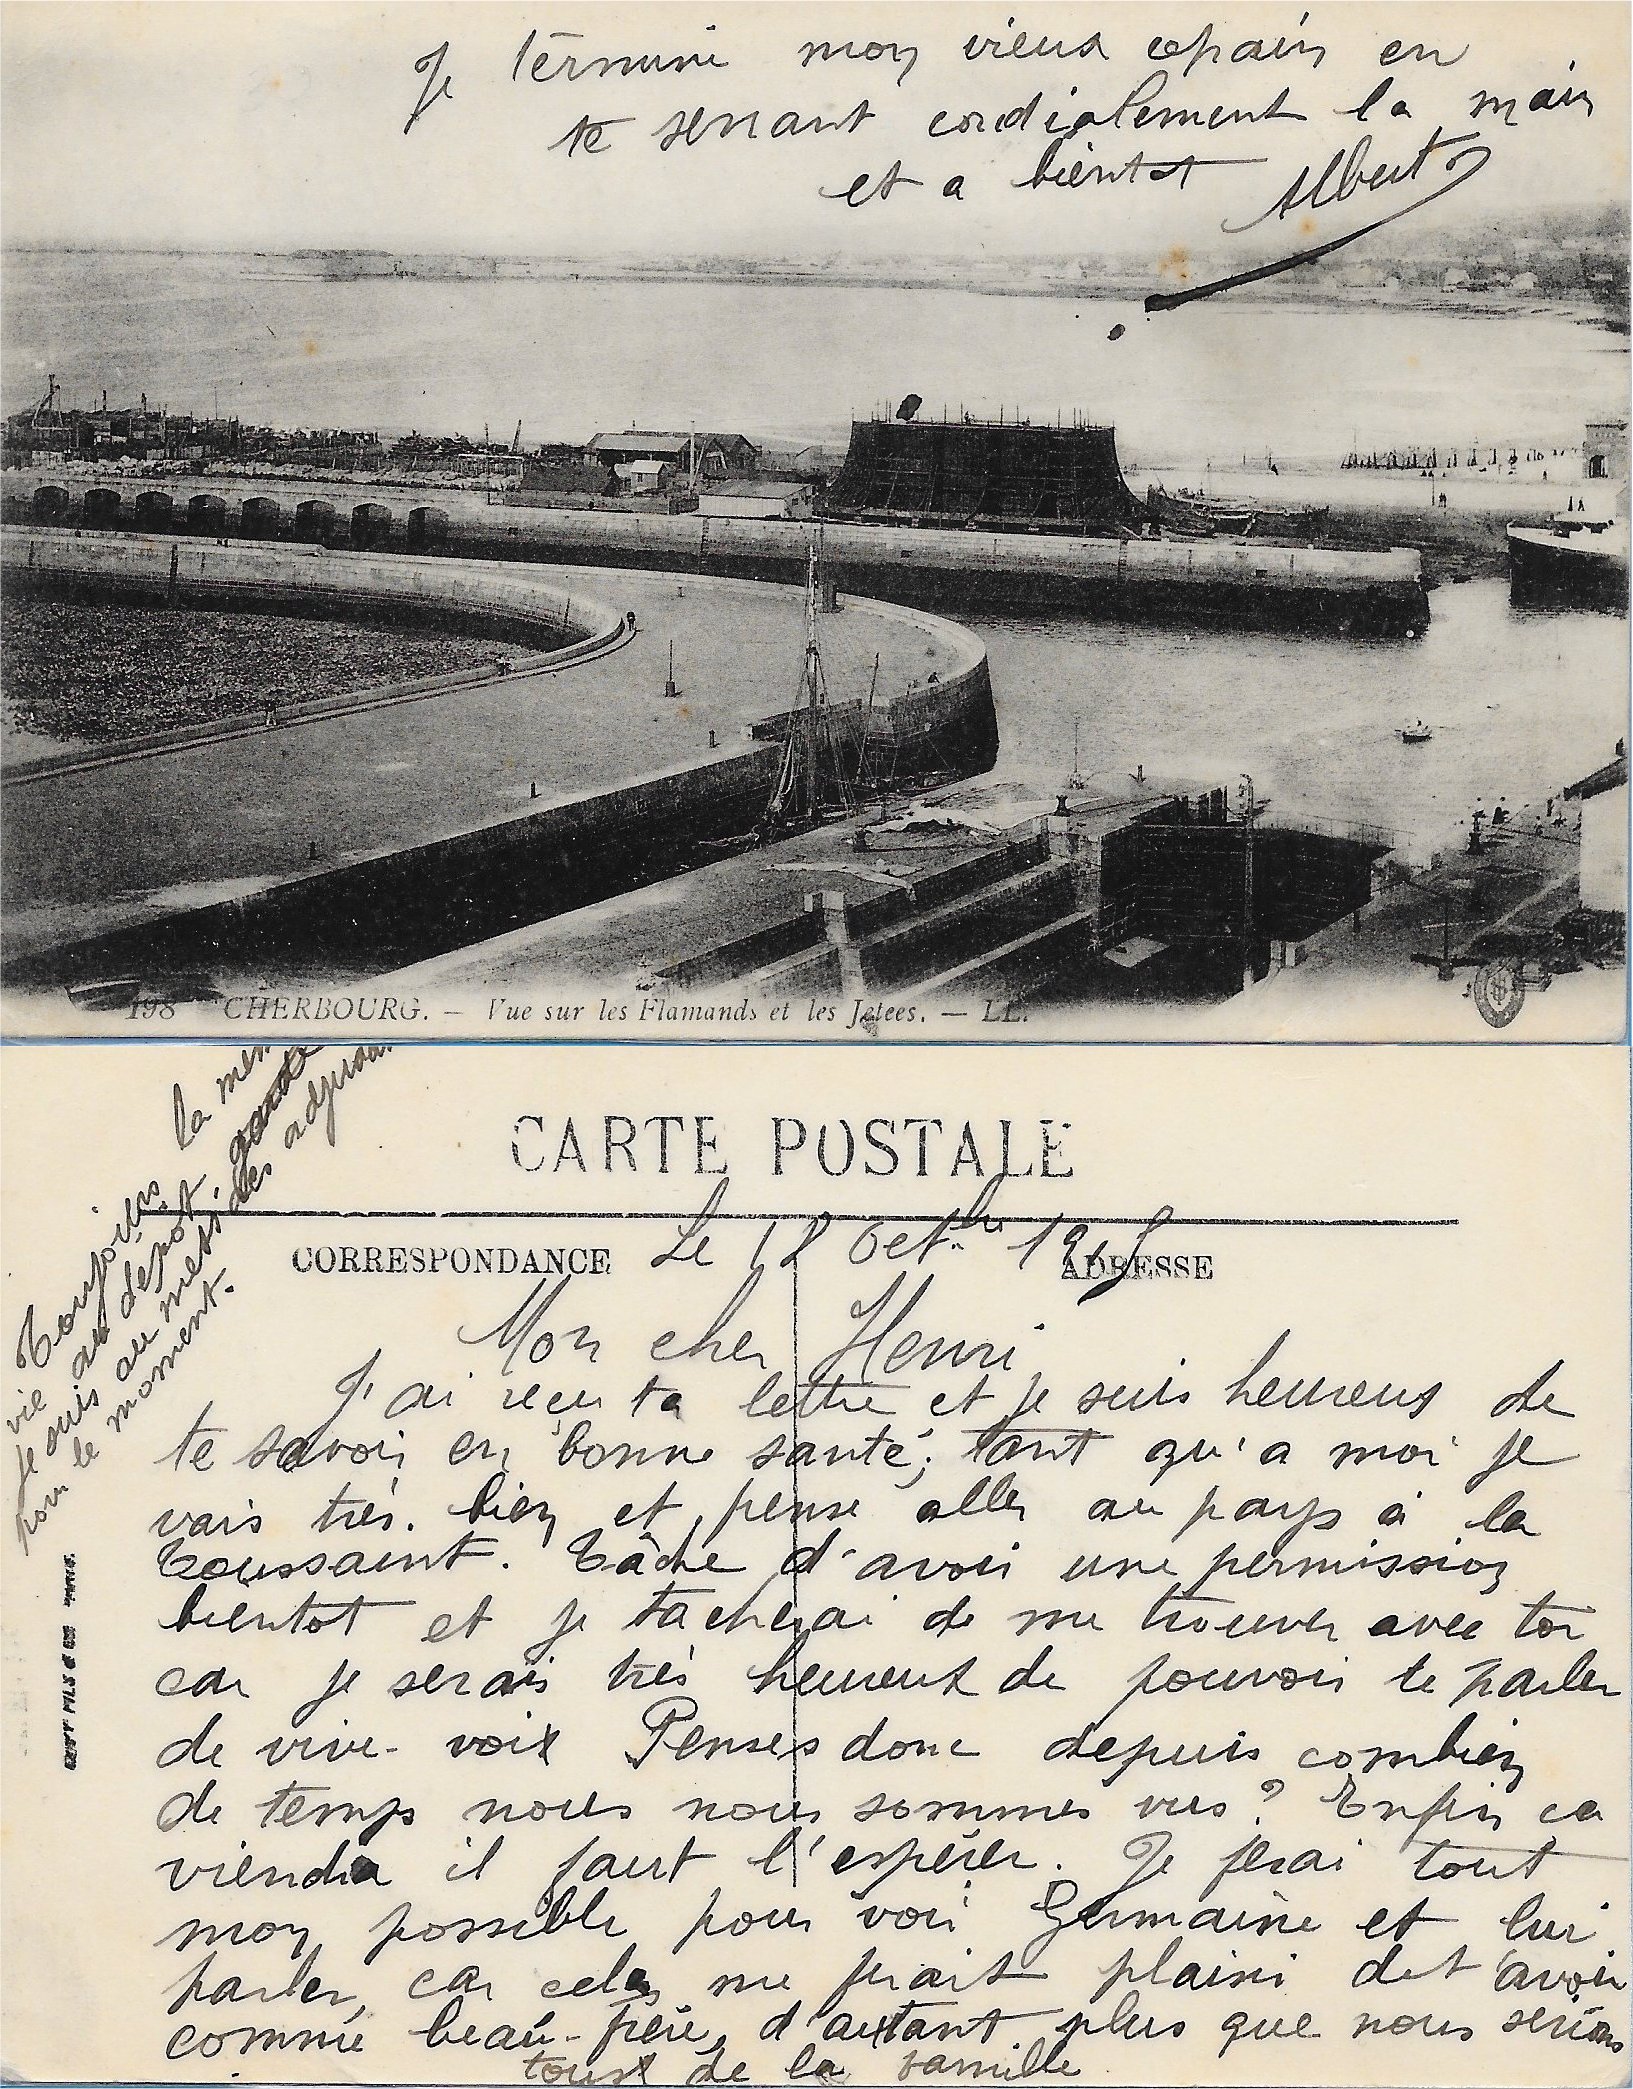 Je termine mon vieux copain en
te serrant cordialement la main
et a bientot Albert
198 - CHERBOURG. - Vue sur les Flamands et les Jetées. - LL.
CARTE POSTALE
CORRESPONDANCE
ADRESSE
Le 18 Oct.bre 1915
Mon cher Henri
J'ai reçu ta lettre et je suis heureux de
te savoir en bonne santé; tant qu'a moi je
vais très bien et pense aller au pays à la
Toussaint. Tâche d'avoir une permission
bientot et je tacherai de me trouver avec toi
car je serais très heureux de pouvoir te parler
de vive-voix Penses donc depuis combien
de temps nous nous sommes vus? Enfin ca
viendra il faut l'espérer. Je ferai tout
mon possible pour voir Germaine et lui
parler, car cela me ferait plaisir de t'avoir
comme beau-frère, d'autant plus que nous serions
tous de la famille
Toujours la mem
vie au depot,
je suis au mess des adjudan
pour le moment.